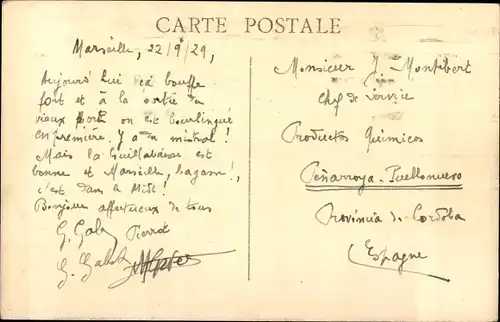 CARTE POSTALE
Marseille, 22/9/29,
Aujourd'hui ça bouffe
fort et à la sortie du
vieux port on est bourlingué
en première. Y a du mistral!
Mais la bouillabaisse est
bonne et Marseille, bagasse!,
c'est dans le Midi!
Bonjour affectueux de tous
Pierrot
Monsieur J. Montibert
Chef de service
Productos Quimicos
Peñarroya-Pueblonuevo
Provincia de Cordoba
Espagne